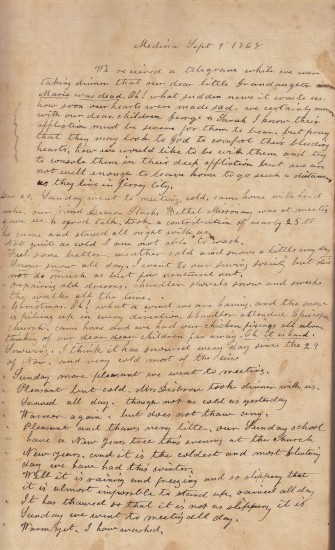 Medina Sept 9 1868
We received a telegram while we were
taking dinner that our dear little Grandaughter
Marie was dead Oh! what sudden news it was to us
how soon our hearts were made sad. we certainly mourn
with our dear children George & Sarah I know their
affliction must be severe for them to bear, but pray
that they may look to God to comfort their bleeding
hearts, how we would like to be with them and try
to console them in their deep affliction but we are
not well enough to leave home to go such a distance
as they live in Jersey City.
Sunday went to meeting, cold, came home with
our friend Deacon Bethel was at meeting
gave us a good talk, took a contribution of nearly 25.00
he came and stayed all night with us,
not quite as cold I am not able to wash.
Feel some better, weather cold and snows a little every day
Snow snow all day. I went to our sewing society but did
not do much as but few ventured out.
repairing old dresses. Chandler shovels snow and sweeps
the walks all the time.
Christmas Oh! what a winter we are having, and the snow
is piling up in every direction Chandler attended Episcopal
Church. came home and we had our chicken fixings all alone,
thinking of our dear dear children far away.
Snowing. I think it has snowed every day since the 29
of Nov. and very cold most of the time
Sunday more pleasant we went to meeting.
Pleasant but cold. Mrs Disbrow took dinner with us.
Snowed all day. though not as cold as yesterday
Warmer again. but does not thaw any.
Pleasant and thaws very little, our Sunday school
have a New Years tree this evening at the Church
New years, and it is the coldest and most blustering
day we have had this winter.
Well it is raining and freezing and so slippery that
it is almost impossible to stand up, rained all day
It has thawed so that it is not as slippery, it is
Sunday we went to meeting all day.
Warm yet. I have washed.